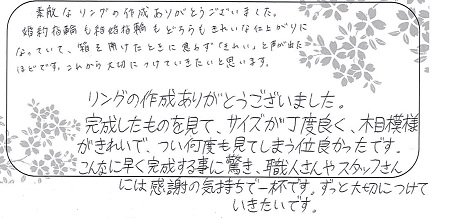 素敵なリングの作成ありがとうございました。
婚約指輪も結婚指輪もどちらもきれいな仕上がりに
なっていて、箱を開けたときに思わず「きれい」と声が出た
ほどです。これから大切につけていきたいと思います。
リングの作成ありがとうございました。
完成したものを見て、サイズが丁度良く、木目模様
がきれいで、つい何度も見てしまう位良かったです。
こんなに早く完成する事に驚き、職人さんやスタッフさん
には感謝の気持ちで一杯です。ずっと大切につけて
いきたいです。